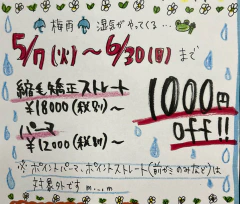 梅雨 湿気がやってくる…
5/7(火)～6/30(日)まで
縮毛矯正ストレート
¥18000(税別)～
パーマ
¥12000(税別)～
1000円
OFF!!
※ポイントパーマ、ポイントストレート(前がミのみなど)は
対象外です m...m